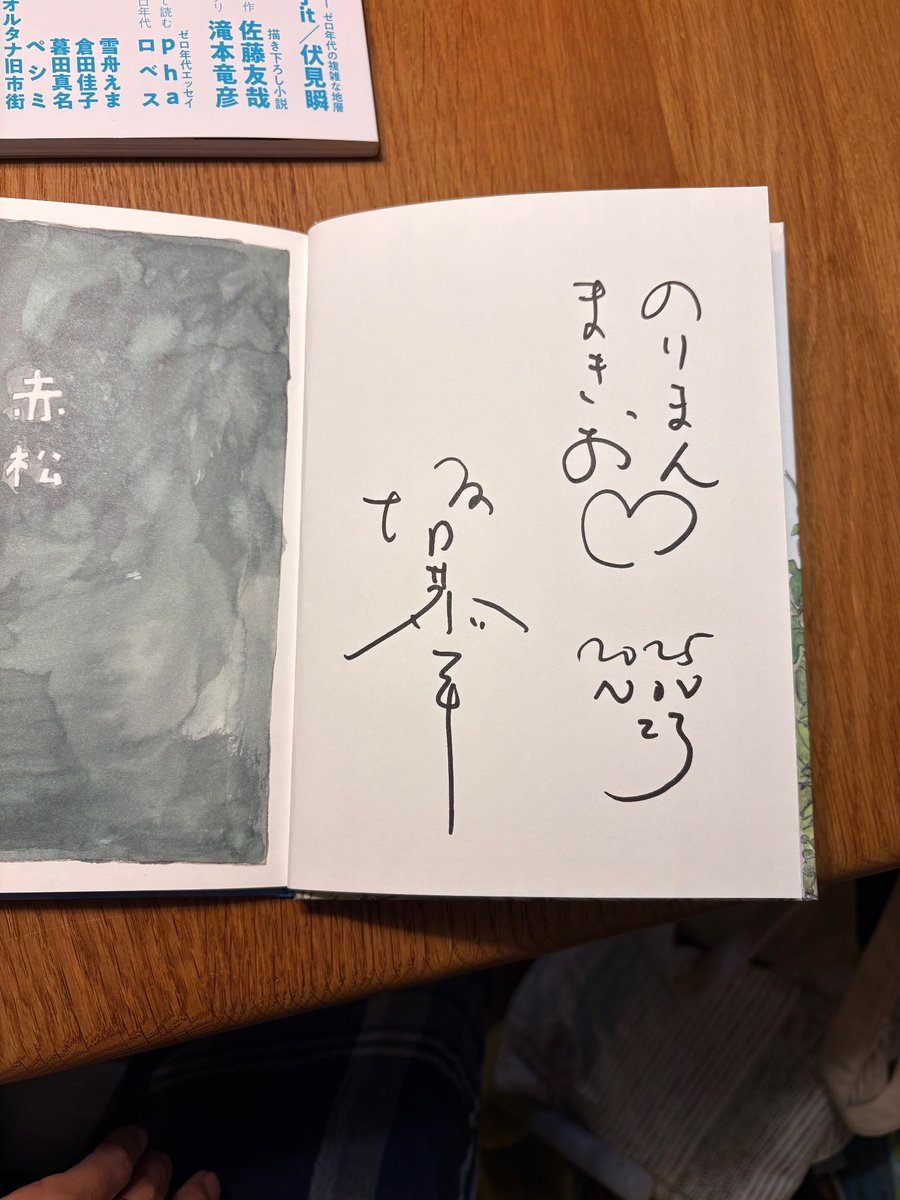 ゼロ年代の複雑な地層
it／伏見瞬
描き下ろし小説
佐藤友哉
滝本竜彦
作
リ
ゼロ年代エッセイ
pha
ロベス
て読む
ロ年代
雪舟えま
倉田佳子
暮田真名
ペシミ
オルタナ旧市街
のりまん
まきお♡
2025
NOV
23
坂口恭平
赤松